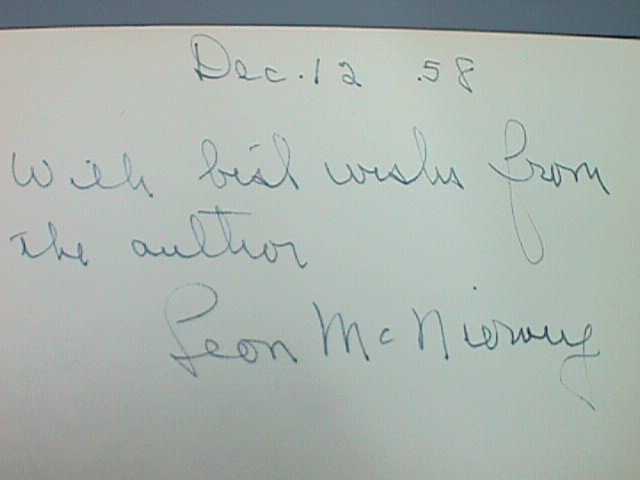 Dec. 12 .58
With best wishes from
the author
Leon McNierney